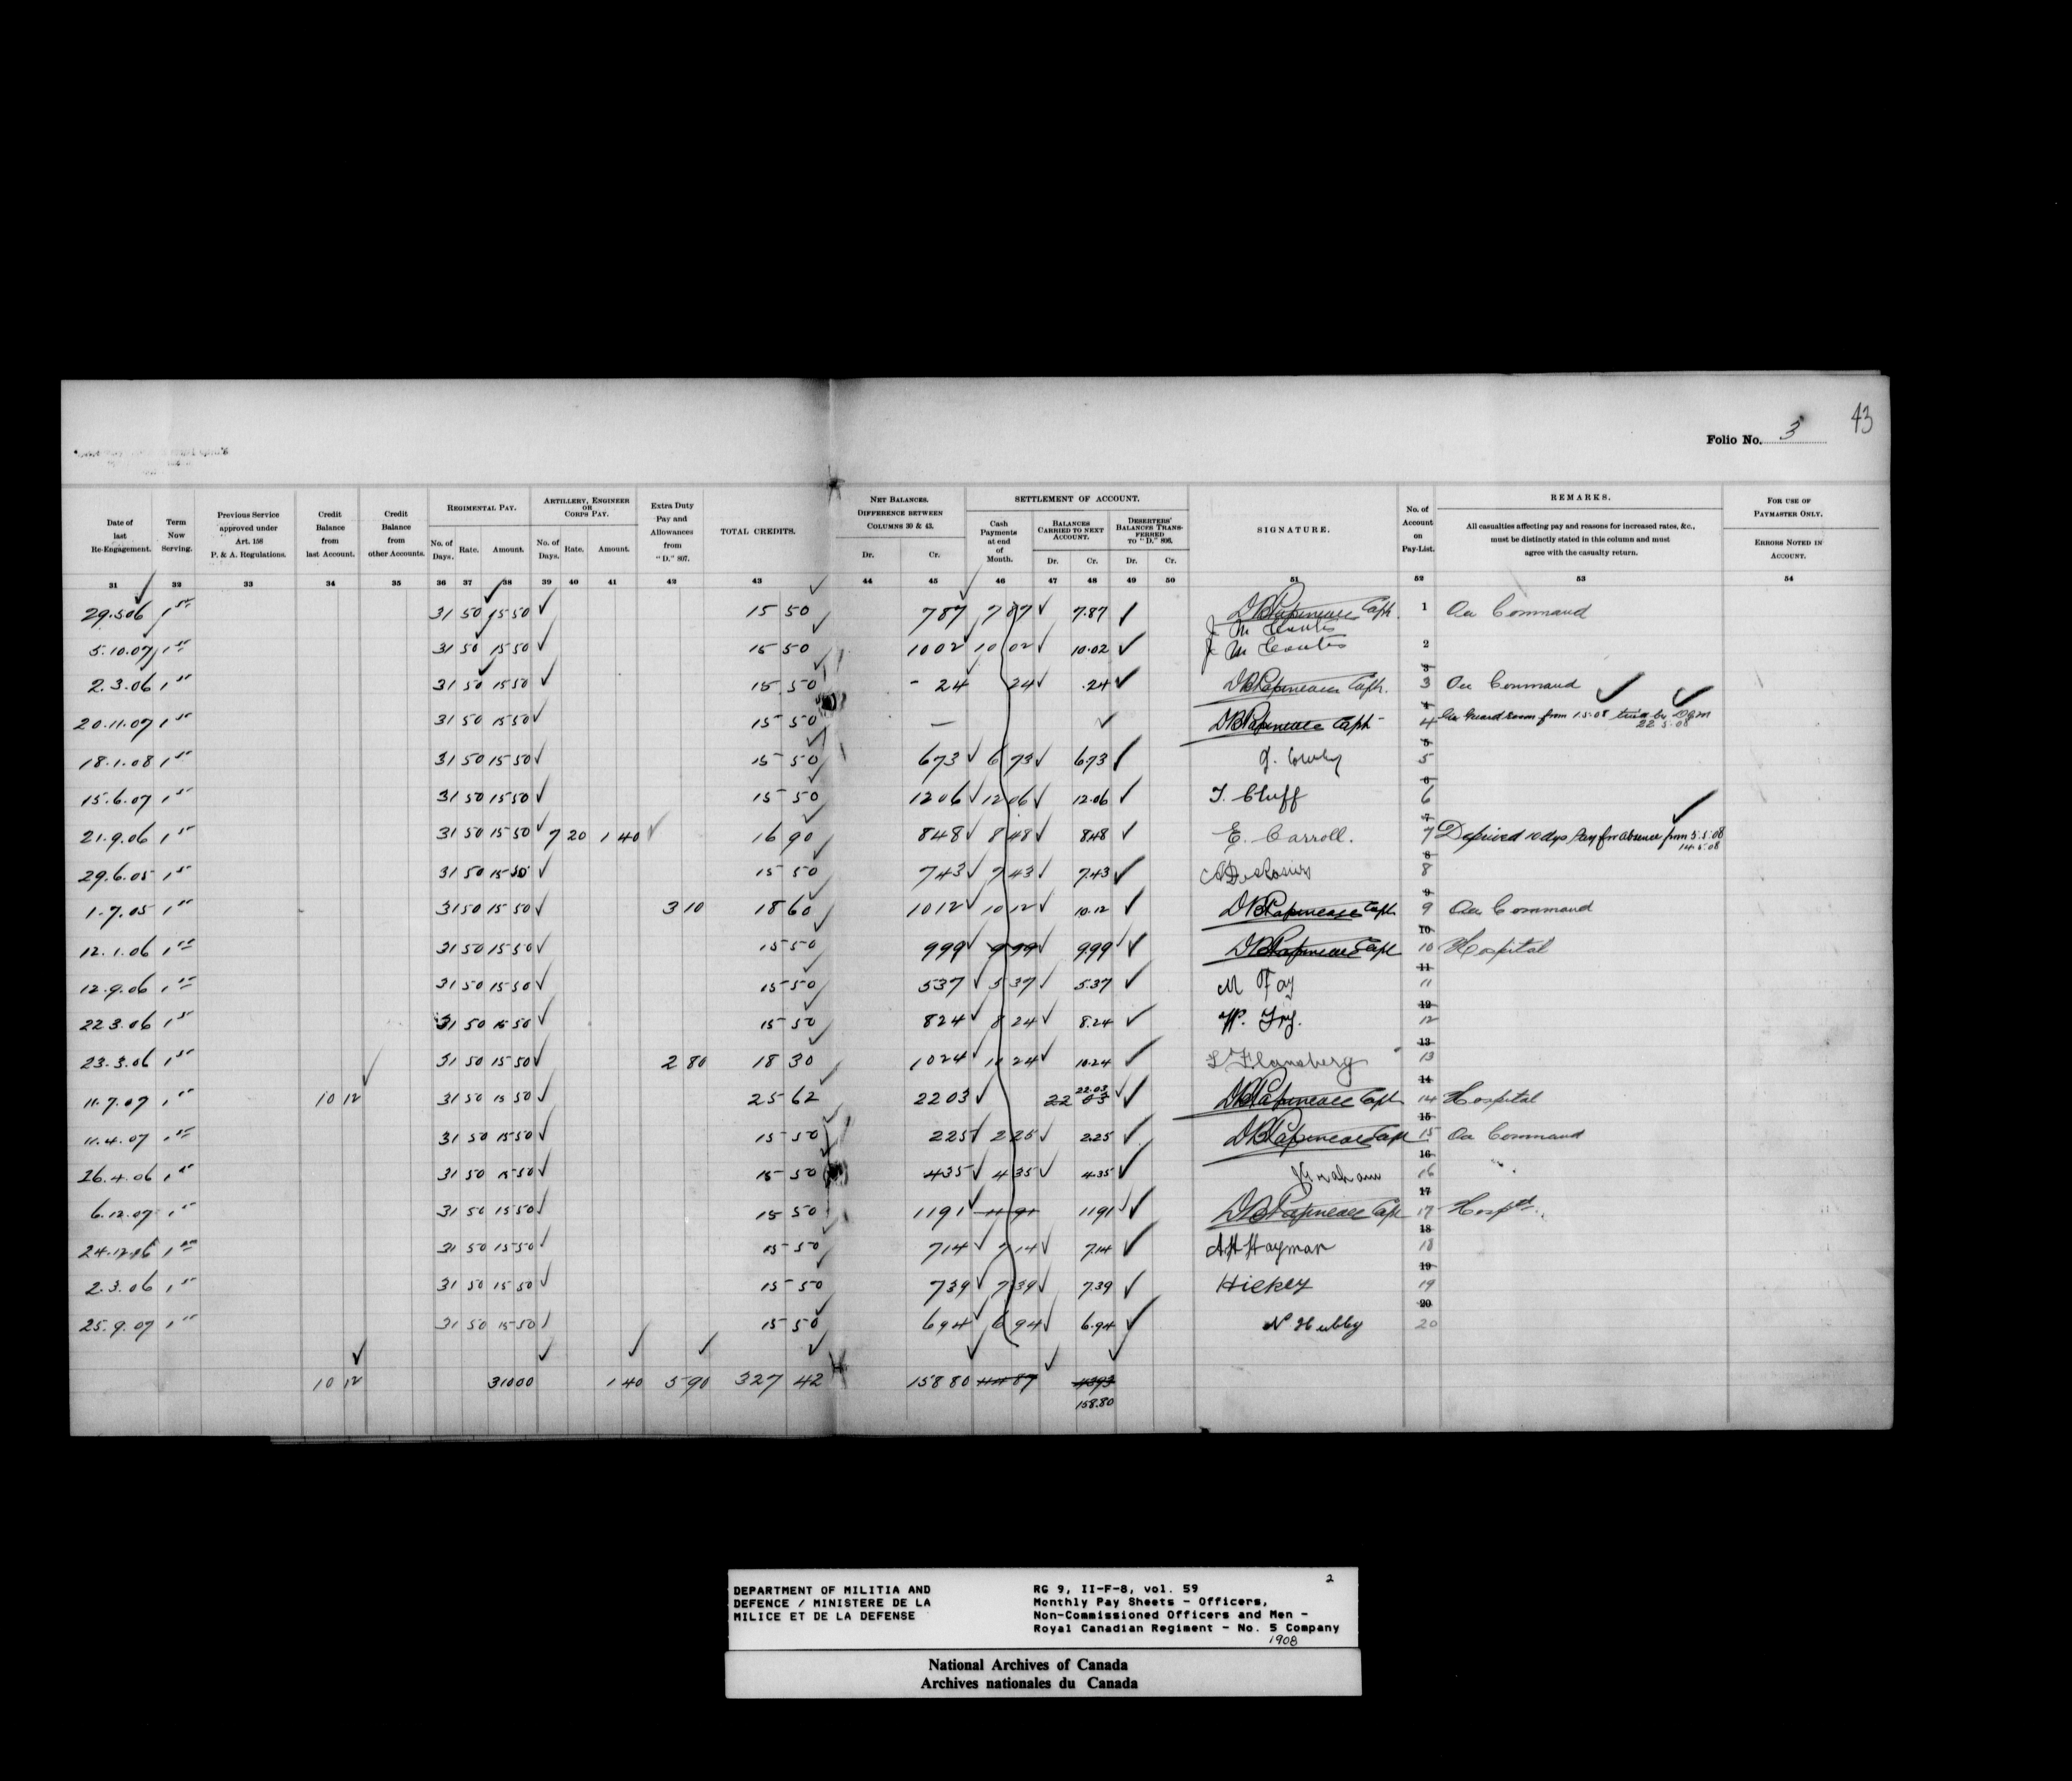 43
Folio No. 3
Date of last Re-Engagement. Term Now Serving. Previous Service approved under Art. 158 P. & A. Regulations. Credit Balance from last Account. Credit Balance from other Accounts. REGIMENTAL PAY. No. of Days. Rate. Amount. ARTILLERY, ENGINEER OR CORPS PAY. No. of Days. Rate. Amount. Extra Duty Pay and Allowances from "D." 807. TOTAL CREDITS. NET BALANCES. DIFFERENCE BETWEEN COLUMNS 30 & 43. Dr. Cr. SETTLEMENT OF ACCOUNT. Cash Payments at end of Month. BALANCES CARRIED TO NEXT ACCOUNT. Dr. Cr. DESERTERS' BALANCES TRANSFERRED TO "D." 806. Dr. Cr. SIGNATURE. No. of Account on Pay-List. REMARKS. All casualties affecting pay and reasons for increased rates, &c., must be distinctly stated in this column and must agree with the casualty return. FOR USE OF PAYMASTER ONLY. ERRORS NOTED IN ACCOUNT.
31 32 33 34 35 36 37 38 39 40 41 42 43 44 45 46 47 48 49 50 51 52 53 54
29.5.06 1st 31 50 15 50 15 50 7 87 7 87 7.87 D B Papineau Capt. 1 On Command
J M Coutts
5.10.07 1st 31 50 15 50 15 50 10 02 10 02 10.02 J M Coutts 2
2.3.06 1st 31 50 15 50 15 50 - 24 24 .24 D B Papineau Capt. 3 3 On Command
20.11.07 1st 31 50 15 50 15 50 — D B Papineau Capt 4 4 Guard Room from 1.5.08 tried by DCM 22.5.08
18.1.08 1st 31 50 15 50 15 50 6 73 6 73 6.73 5 5
15.6.07 1st 31 50 15 50 15 50 12 06 12 06 12.06 T. Cluff 6 6
21.9.06 1st 31 50 15 50 7 20 1 40 16 90 8 48 8 48 8.48 E. Carroll. 7 7 Deprived 10 dys Pay for absence from 5.5.08 14.5.08
29.6.05 1st 31 50 15 50 15 50 7 43 7 43 7.43 A DesRosiers 8 8
1.7.05 1st 31 50 15 50 3 10 18 60 10 12 10 12 10.12 D B Papineau Capt 9 9 On Command
12.1.06 1st 31 50 15 50 15 50 9 99 9 99 9.99 D B Papineau Capt 10 10 Hospital
12.9.06 1st 31 50 15 50 15 50 5 37 5 37 5.37 M Fay 11 11
22.3.06 1st 31 50 15 50 15 50 8 24 8 24 8.24 W. Fry. 12 12
23.3.06 1st 31 50 15 50 2 80 18 30 10 24 10 24 10.24 Flansberg 13 13
11.7.07 1st 10 12 31 50 15 50 25 62 22 03 22 03 22.03 D B Papineau Capt 14 14 Hospital
11.4.07 1st 31 50 15 50 15 50 2 25 2 25 2.25 D B Papineau Capt 15 15 On Command
26.4.06 1st 31 50 15 50 15 50 4 35 4 35 4.35 J Graham 16 16 "
6.12.07 1st 31 50 15 50 15 50 11 91 11 91 11 91 D B Papineau Capt 17 17 Hosptl.
24.12.06 1st 31 50 15 50 15 50 7 14 7 14 7.14 A H Hayman 18 18
2.3.06 1st 31 50 15 50 15 50 7 39 7 39 7.39 Hickey 19 19
25.9.07 1st 31 50 15 50 15 50 6 94 6 94 6.94 N Hubby 20 20
10 12 310 00 1 40 5 90 327 42 158 80
158.80
DEPARTMENT OF MILITIA AND
DEFENCE / MINISTERE DE LA
MILICE ET DE LA DEFENSE
RG 9, II-F-8, vol. 59 2
Monthly Pay Sheets - Officers,
Non-Commissioned Officers and Men -
Royal Canadian Regiment - No. 5 Company
1908
National Archives of Canada
Archives nationales du Canada